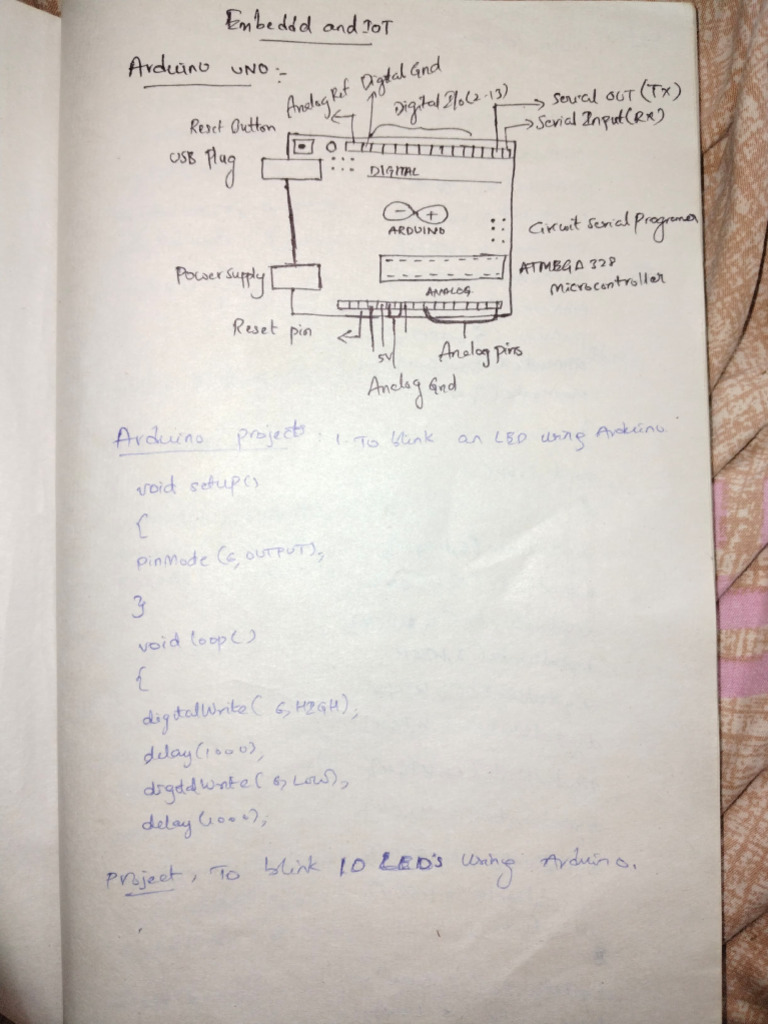 Embeddd and IoT
Arduino UNO:-
Analog Ref
Digital Gnd
Digital I/o (2-13)
Serial OUT (Tx)
Serial Input (Rx)
Reset Button
USB Plug
DIGITAL
- +
ARDUINO
Circuit Serial Programer
Power supply
ATMEGA 328
Microcontroller
ANALOG
Reset pin
5V
Analog pins
Analog Gnd
Arduino projects: 1. To blink an LED using Arduino
void setup()
{
pinMode (6, OUTPUT);
}
void loop()
{
digitalWrite( 6, HIGH);
delay(1000);
digitalWrite( 6, LOW);
delay(1000);
Project, To blink 10 LED's using Arduino.